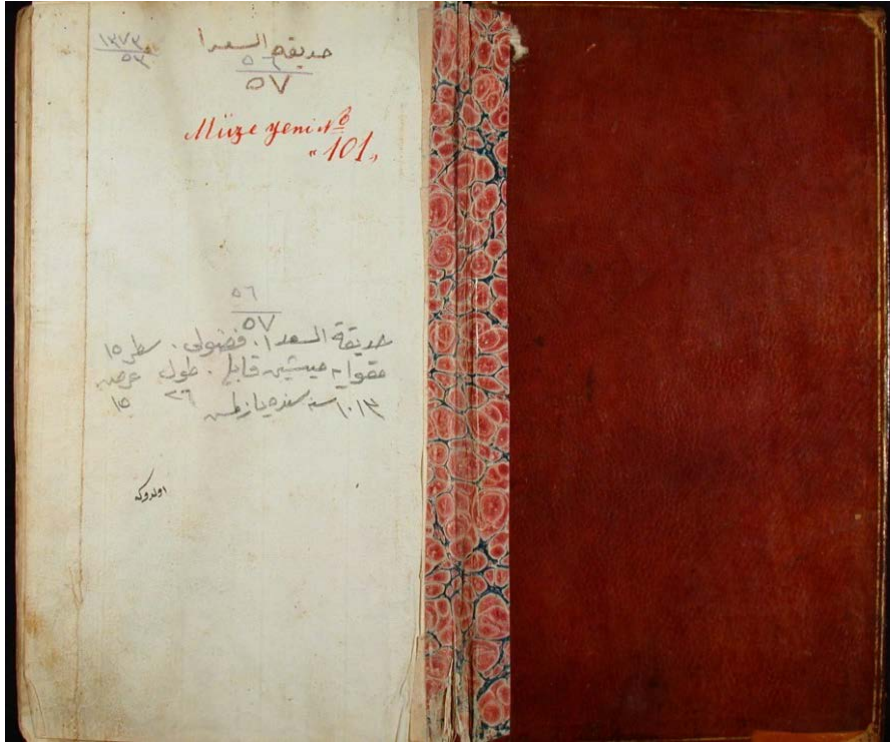 ١٣٧٣
٥٣
حديقة السعدا
٥٦
٥٧
Müze yeni №
"101"
٥٦
٥٧
حديقة السعدا . فضولى . سطر ١٥
مقوايه ميشين قابلى . طول عرض
١٠١٣ سنه سنده يازلمش ٢٦ ١٥